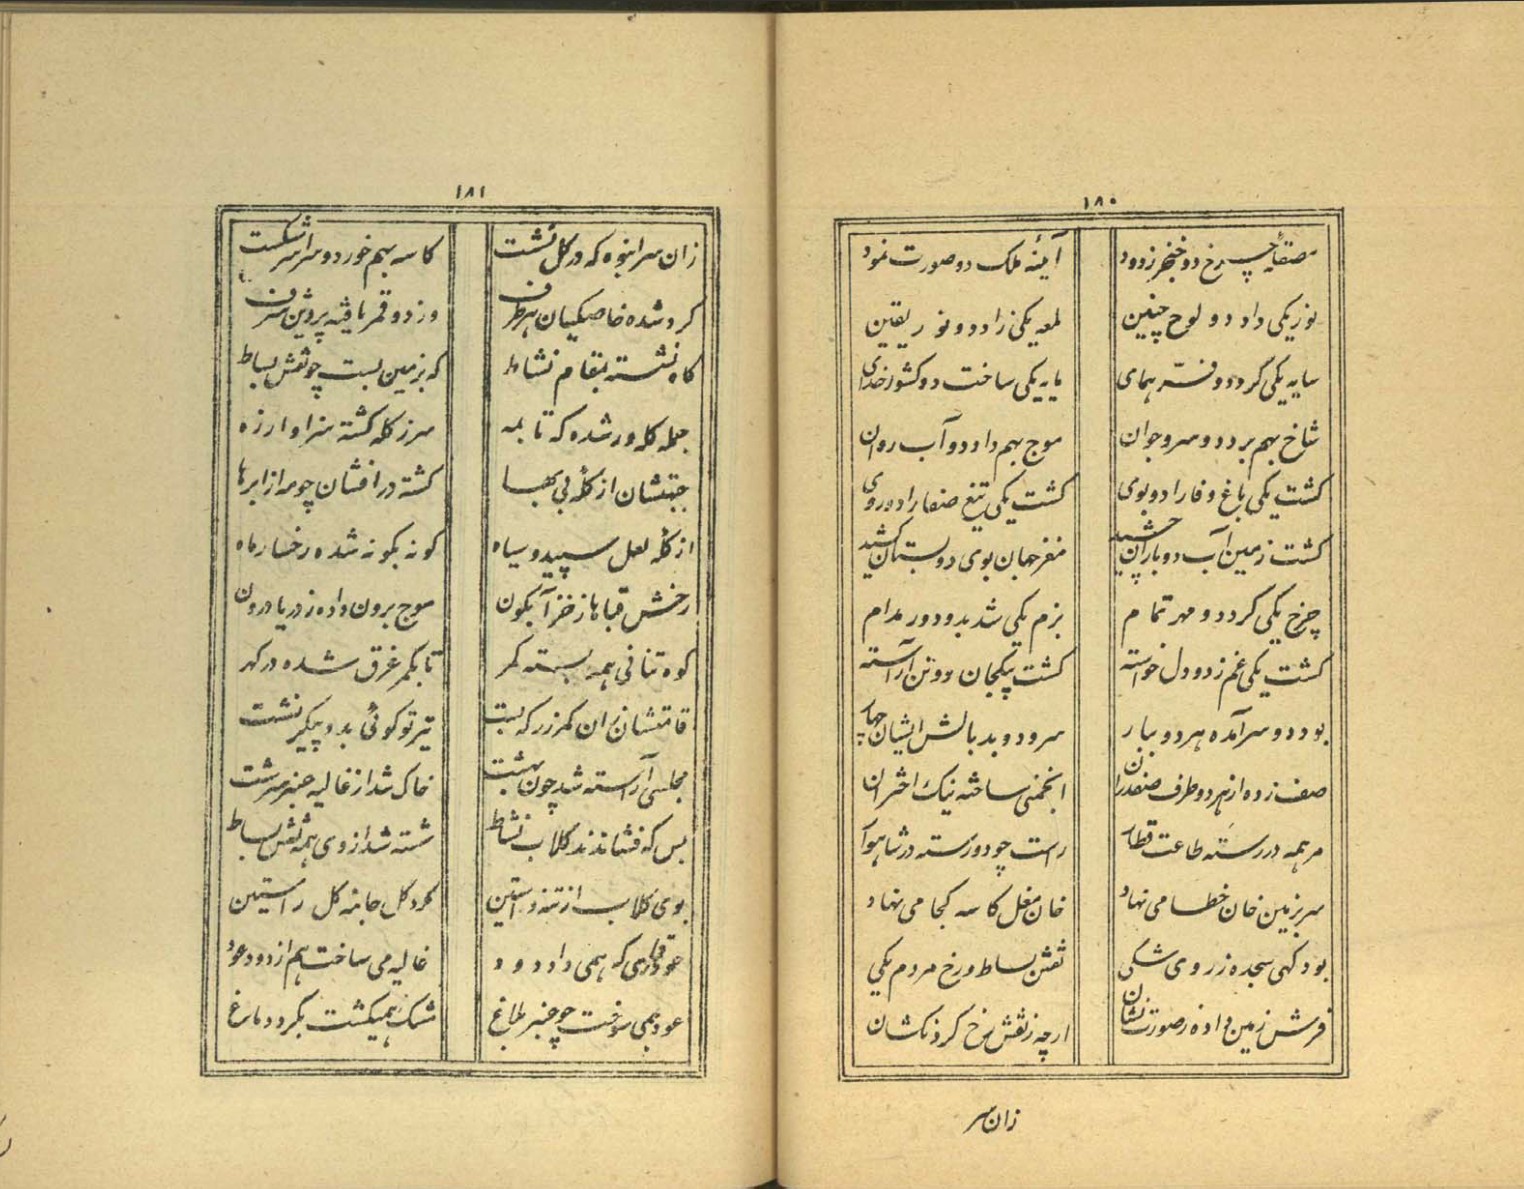 ١٨٠
صقله چرخ دو خنجر زدود آینهٔ ملک دو صورت نمود
نور یکی داد دو لوح جبین لمعه یکی زاد دو نور یقین
سایه یکی کرد دو فرّ همای مایه یکی ساخت دو کشور خدای
شاخ بهم برد دو سرو جوان موج بهم داد دو آب روان
کشت یکی باغ وفا را دو بوی کشت یکی تیغ صفا را دو روی
کشت زمین آب دو باران چشید مغز جهان بوی دو بستان کشید
چرخ یکی کرد دو مهر تمام بزم یکی شد بدو دور مدام
کشت یکی غم ز دو دل خواسته کشت یکجان دو تن آراسته
بود دو سر آمده هر دو ببار سرود و بد بالش ایشان چهار
صف زده از هر دو طرف صفدران انجمنی ساخته نیک اختران
سر همه در رسته طاعت قطار راست چو دو رسته در شاهوار
سر بزمین خان خطا می نهاد خان مغل کاسه کجا می نهاد
بود کهی سجده ز روی شکی نقش بساط و رخ مردم یکی
فرش زمین داده ز صورت نشان ارچه ز نقش رخ کردنکشان
زان سر
١٨١
زان سر انبوه که در کل نشست کاسه بهم خورد و سراسر شکست
کرد شده خاصکیان هر طرف وز دو قمر یافته پروین شرف
کاه نشسته بمقام نشاط که بزمین بست چو نقش بساط
جمله کله ور شده که تا بمه سر ز کله کشته سزاوار زه
جبتشان از کلهٔ بی بها کشته در افشان چو مه از ابرها
از کلهٔ لعل سپید و سیاه کونه بکونه شده رخسار ماه
رخش قباها ز خز آبکون موج برون داده ز دریا درون
کوه تنانی همه بسته کمر تا بکمر غرق شده در کهر
قامتشان زان کمر زر که بست تیر تو کوئی بدو پیکر نشست
مجلسی آراسته شد چون بهشت خاک شد از غالیه عنبر سرشت
بس که فشاندند کلاب نشاط شسته شد از وی همه نقش بساط
بوی کلاب از تنه و آستین کرد کل جامه کل راستین
عود قماری که همی داد دود غالیه می ساخت هم از دود عود
عود همی سوخت چو عنبر بلاغ مشک همیکشت بکرد دماغ